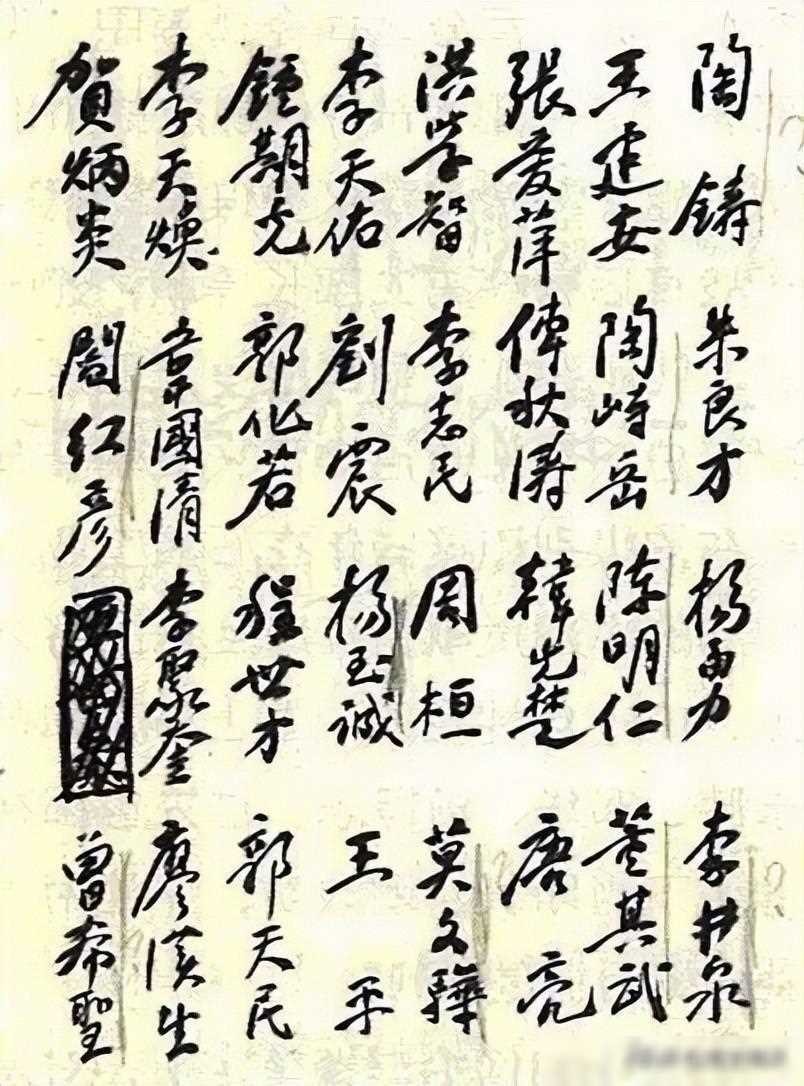 陶鑄
朱良才
楊勇力
李井泉
王建安
陶峙岳
陈明仁
董其武
張爱萍
傅秋涛
韓先楚
唐亮
洪学智
李志民
周桓
莫文驊
李天佑
劉震
楊至诚
王平
鍾期光
郭化若
程世才
郭天民
李天焕
韋國清
李聚奎
廖漢生
賀炳炎
閻红彦
曾希聖